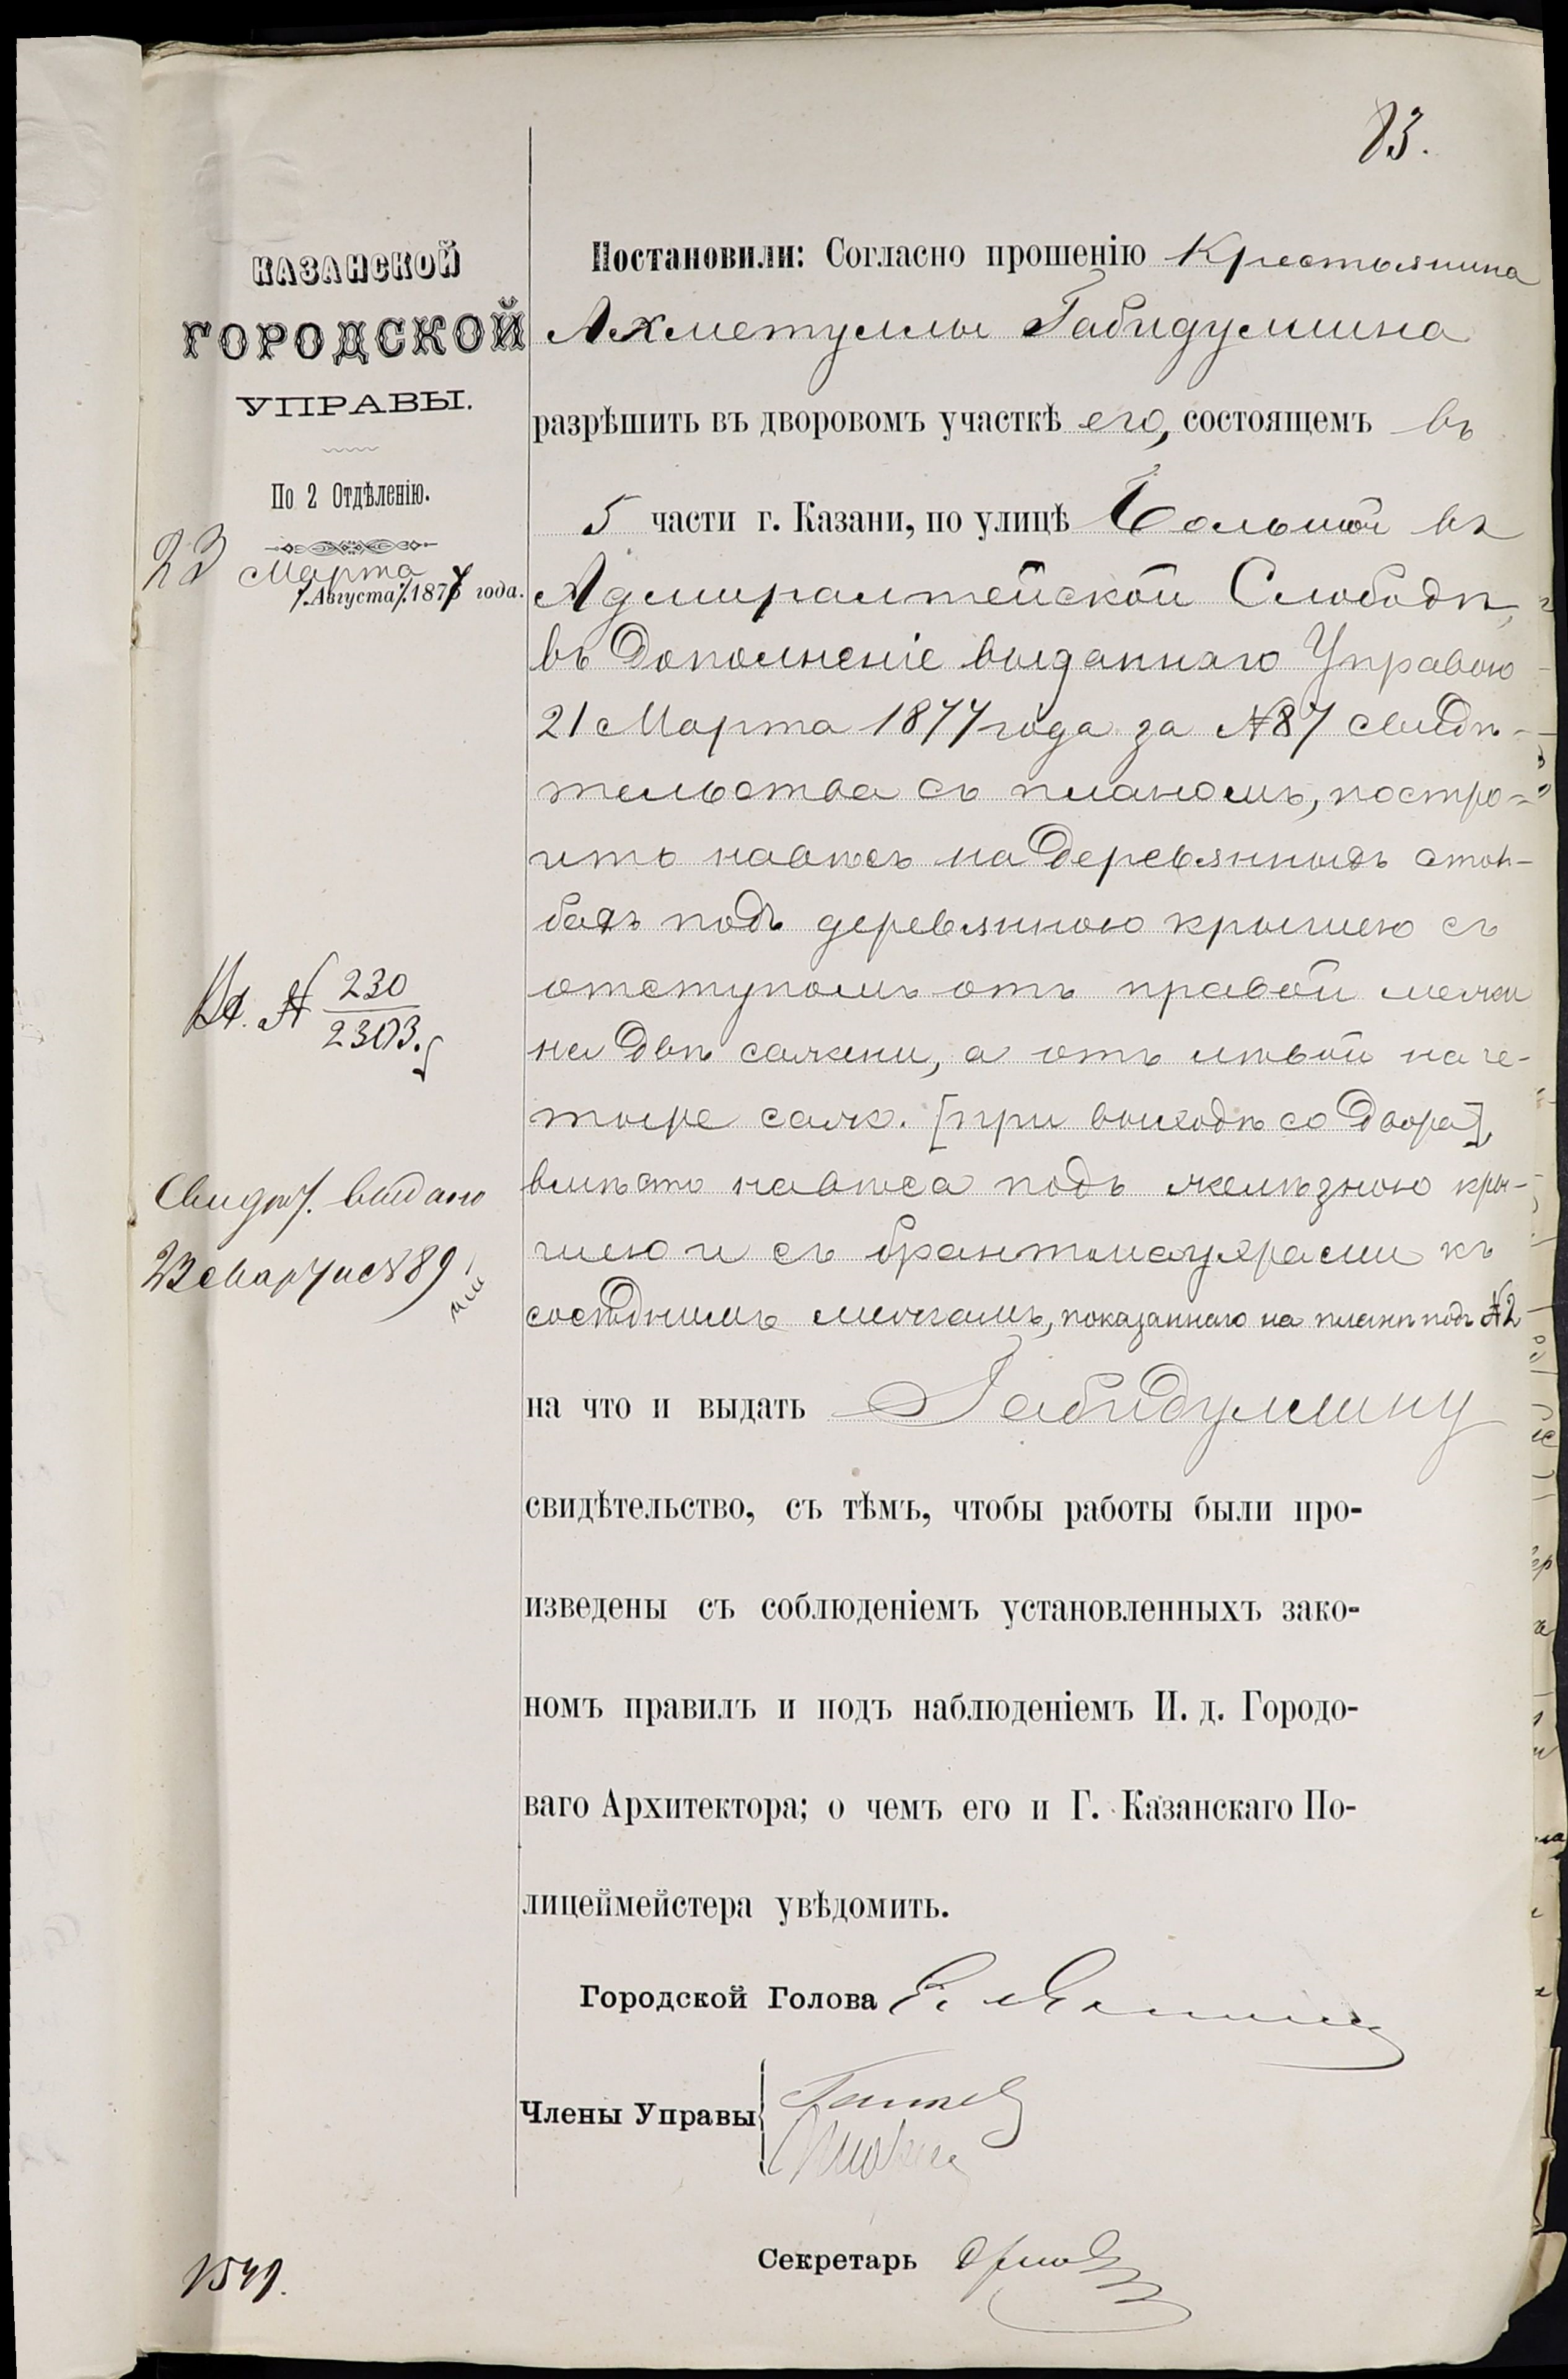 83.
КАЗАНСКОЙ
ГОРОДСКОЙ
УПРАВЫ.
По 2 Отдѣленію.
23 Марта
Августа 1877 года.
Вх. № 230
2303.
Свидѣт. выдано
23 Марта № 89
1549.
Постановили: Согласно прошенію Крестьянина
Ахметуллы Габидуллина
разрѣшить въ дворовомъ участкѣ его, состоящемъ въ
5 части г. Казани, по улицѣ Большой въ
Адмиралтейской Слободѣ,
въ дополненіе выданнаго Управою
21 Марта 1877 года за № 87 свидѣ-
тельства съ планомъ, постро-
ить навѣсъ на деревянныхъ стол-
бахъ подъ деревянною крышею съ
отступомъ отъ правой межи
на двѣ сажени, а отъ лѣвой на че-
тыре саж. [при выходѣ со двора],
вмѣсто навѣса подъ желѣзною кры-
шею и съ брантмауерами къ
сосѣднимъ межамъ, показаннаго на планѣ подъ № 2
на что и выдать Габидуллину
свидѣтельство, съ тѣмъ, чтобы работы были про-
изведены съ соблюденіемъ установленныхъ зако-
номъ правилъ и подъ наблюденіемъ И. д. Городо-
ваго Архитектора; о чемъ его и Г. Казанскаго По-
лицеймейстера увѣдомить.
Городской Голова
Члены Управы
Секретарь